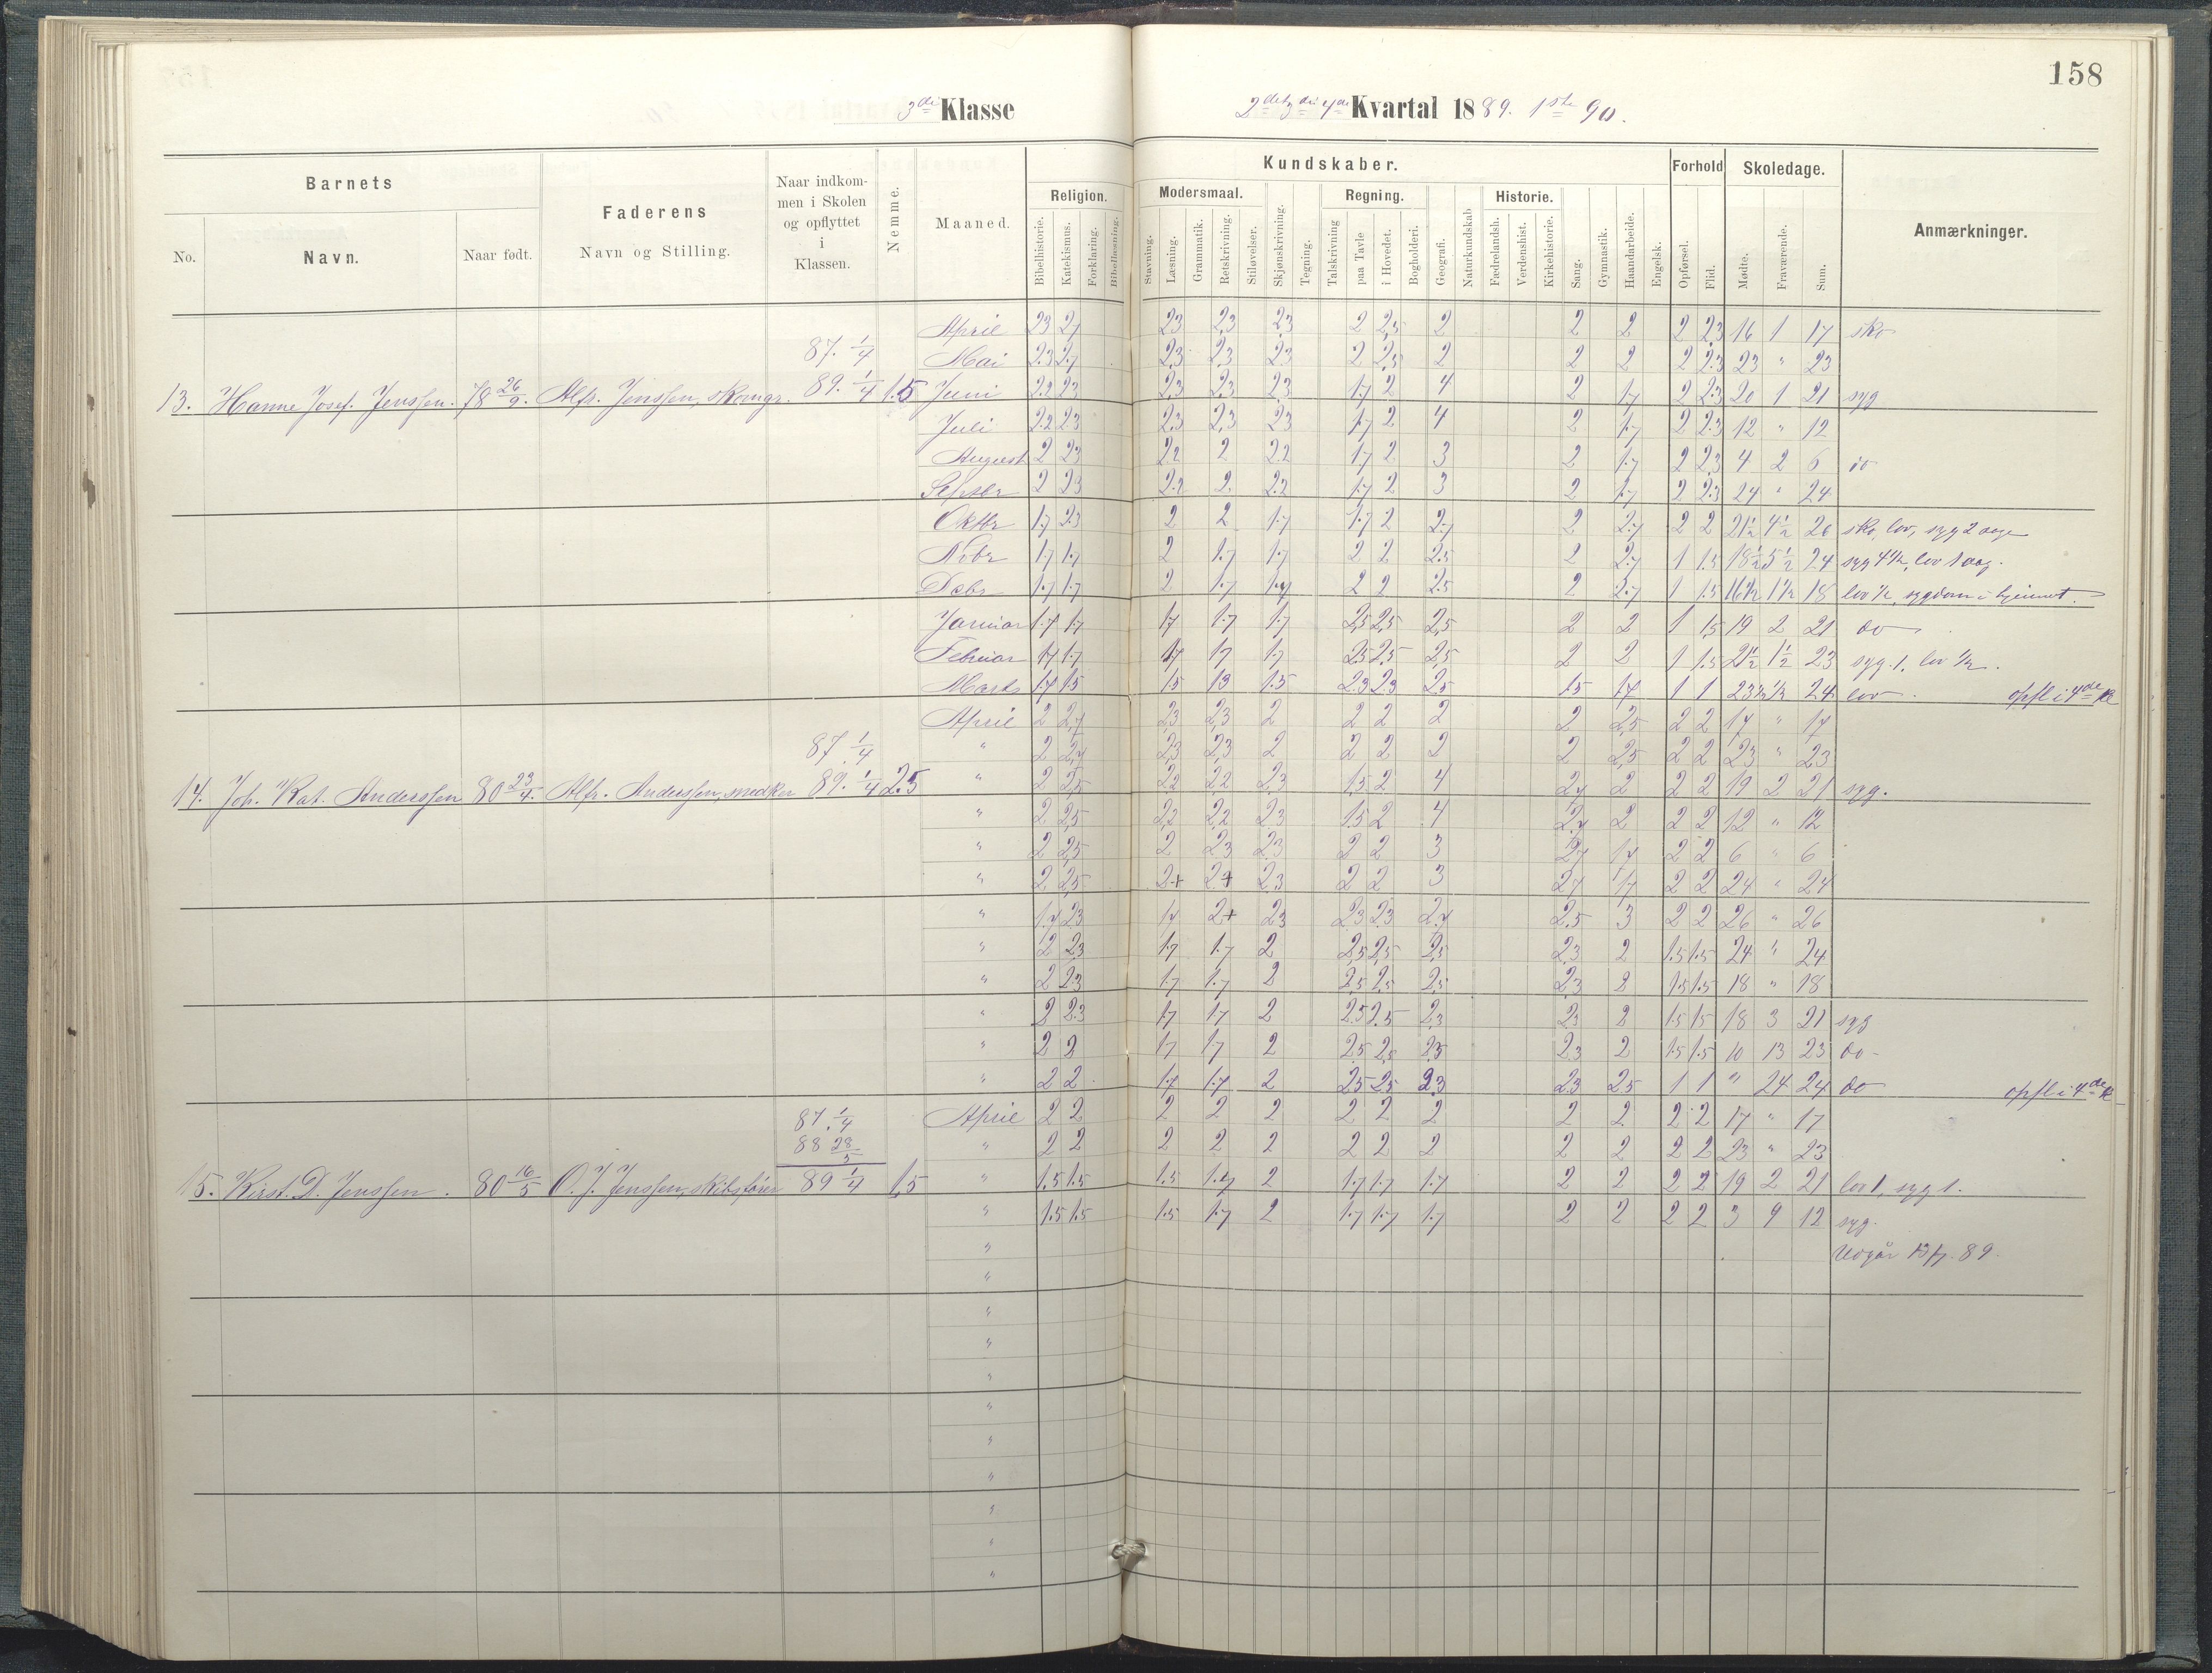 158
3die Klasse 2det 3die 4de Kvartal 1889. 1ste 90.
Barnets
Faderens
Naar indkommen i Skolen og opflyttet i Klassen.
Nemme.
Maaned.
Kundskaber.
Forhold
Skoledage.
Anmærkninger.
Religion.
Modersmaal.
Regning.
Historie.
No. Navn. Naar født. Navn og Stilling.
Bibelhistorie. Katekismus. Forklaring. Bibellæsning. Stavning. Læsning. Grammatik. Retskrivning. Stiløvelser. Skjønskrivning. Tegning. Talskrivning paa Tavle i Hovedet. Bogholderi. Geografi. Naturkundskab Fædrelandsh. Verdenshist. Kirkehistorie. Sang. Gymnastik. Haandarbeide. Engelsk. Opførsel. Flid. Mødte. Fraværende. Sum.
April 23 2,7 23 2,3 2,3 2 2,5 2 2 2 2 2,3 16 1 17 sko
87. 1/4 Mai 2.3 2.7 2,3 2,3 2.3 2 2,5 2 2 2 2 2.3 23 " 23
13. Hanne Josef. Jenssen. 78 26/9. Alfr. Jenssen, skomgr. 89. 1/4 1.5 Juni 2.2 23 2,3 2,3 2,3 1.7 2 4 2 1.7 2 2.3 20 1 21 syg
Juli 2.2 2.3 2,3 2,3 23 1.7 2 4 2 1.7 2 2.3 12 " 12
August 2 23 22 2 2.2 1.7 2 3 2 1.7 2 2,3 4 2 6 do
Septbr 2 23 2.2 2 2.2 1.7 2 3 2 1.7 2 2.3 24 " 24
Oktbr 1.7 2.3 2 2 1.7 1.7 2 2.7 2 2.7 2 2 21 1/2 4 1/2 26 sko, lov, syg 2 dage
Novbr 1.7 1.7 2 1.7 1.7 2 2 2.5 2 2.7 1 1.5 18 1/2 5 1/2 24 syg 4 1/2, lov 1 dag.
Decbr 1.7 1.7 2 1.7 1.7 2 2 2.5 2 2.7 1 1.5 16 1/2 1 1/2 18 lov 1/2, sygdom i hjemmet.
Januar 1.7 1.7 1.7 1.7 1.7 2,5 2,5 2,5 2 2 1 1,5 19 2 21 do
Februar 1.7 1.7 1.7 1.7 1.7 2.5 2.5 2,5 2 2 1 1.5 21 1/2 1 1/2 23 syg. 1. lov 1/2.
Marts 1.7 1.5 1.5 13 1.5 2.3 2.3 2.5 1.5 1.7 1 1 23 1/2 1/2 24 lov. opfl i 4de Kl
April 2 2,7 2,3 2,3 2 2 2 2 2 2,5 2 2 17 " 17
87. 1/4 " 2 2,7 2,3 2,3 2 2 2 2 2 2,5 2 2 23 " 23
14. Joh. Kat. Anderssen 80 23/4. Alfr. Anderssen, snedker 89. 1/4 2.5 " 2 2,5 2.2 2,2 2,3 1,5 2 4 2.7 2 2 2 19 2 21 syg.
" 2 2,5 2,2 2,2 2,3 1.5 2 4 2.7 2 2 2 12 " 12
" 2 2,5 2 2,3 2,3 2 2 3 2.7 1.7 2 2 6 " 6
" 2 2,5 2+ 2+ 2.3 2 2 3 2,7 1.7 2 2 24 " 24
" 1.7 23 1.7 2+ 23 23 2.3 2.7 2.5 3 2 2 26 " 26
" 2 2.3 1.7 1.7 2 2,5 2,5 2,5 2.3 2 1.5 1.5 24 " 24
" 2 2.3 1.7 1.7 2 2,5 2.5 2,5 2,3 2 1.5 1.5 18 " 18
" 2 2.3 1.7 1.7 2 2.5 2.5 2,3 2.3 2 1.5 1.5 18 3 21 syg
" 2 2 1.7 1.7 2 2.5 2,5 2.5 2.3 2 1.5 1.5 10 13 23 do-
" 2 2 1.7 1.7 2 2.5 2.5 2.3 2.3 2.5 1 1 " 24 24 do opfl i 4de Kl
87. 1/4 April 2 2 2 2 2 2 2 2 2 2 2 2 17 " 17
88 28/5 " 2 2 2 2 2 2 2 2 2 2 2 2 23 " 23
15. Kirst. D. Jenssen. 80 16/5 O. J. Jenssen, skibsfører 89 1/4 1,5 " 1.5 1.5 1.5 1.7 2 1.7 1.7 1.7 2 2 2 2 19 2 21 lov 1, syg 1.
" 1.5 1.5 1.5 1.7 2 1.7 1.7 1.7 2 2 2 2 3 9 12 syg.
" Udgår 89.
"
"
"
"
"
"
"
"
"
"